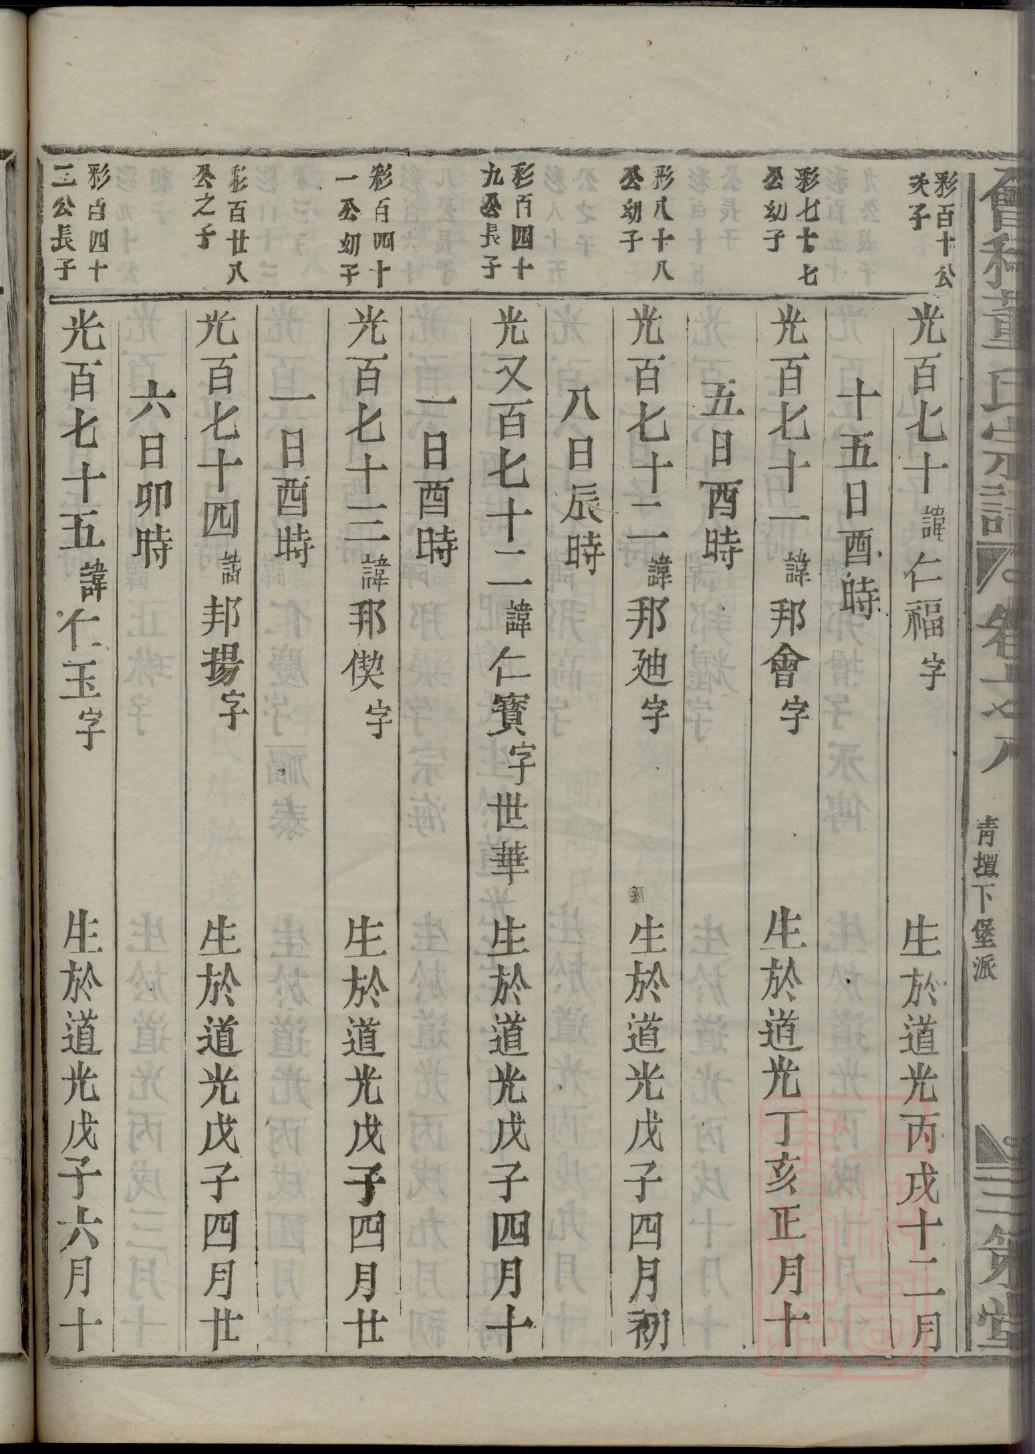 會稽董氏宗譜
卷
青壇下堡派
三策堂
彩百十公
次子
光百七十諱仁福字 生於道光丙戌十二月
十五日酉時
彩七十七
公幼子
光百七十一諱邦會字 生於道光丁亥正月十
五日酉時
彩八十八
公幼子
光百七十二諱邦廸字 生於道光戊子四月初
八日辰時
彩百四十
九公長子
光又百七十二諱仁寶字世華 生於道光戊子四月十
一日酉時
彩百四十
一公幼子
光百七十三諱邦偰字 生於道光戊子四月廿
一日酉時
彩百廿八
公之子
光百七十四諱邦揚字 生於道光戊子四月廿
六日卯時
彩百四十
二公長子
光百七十五諱仁玉字 生於道光戊子六月十